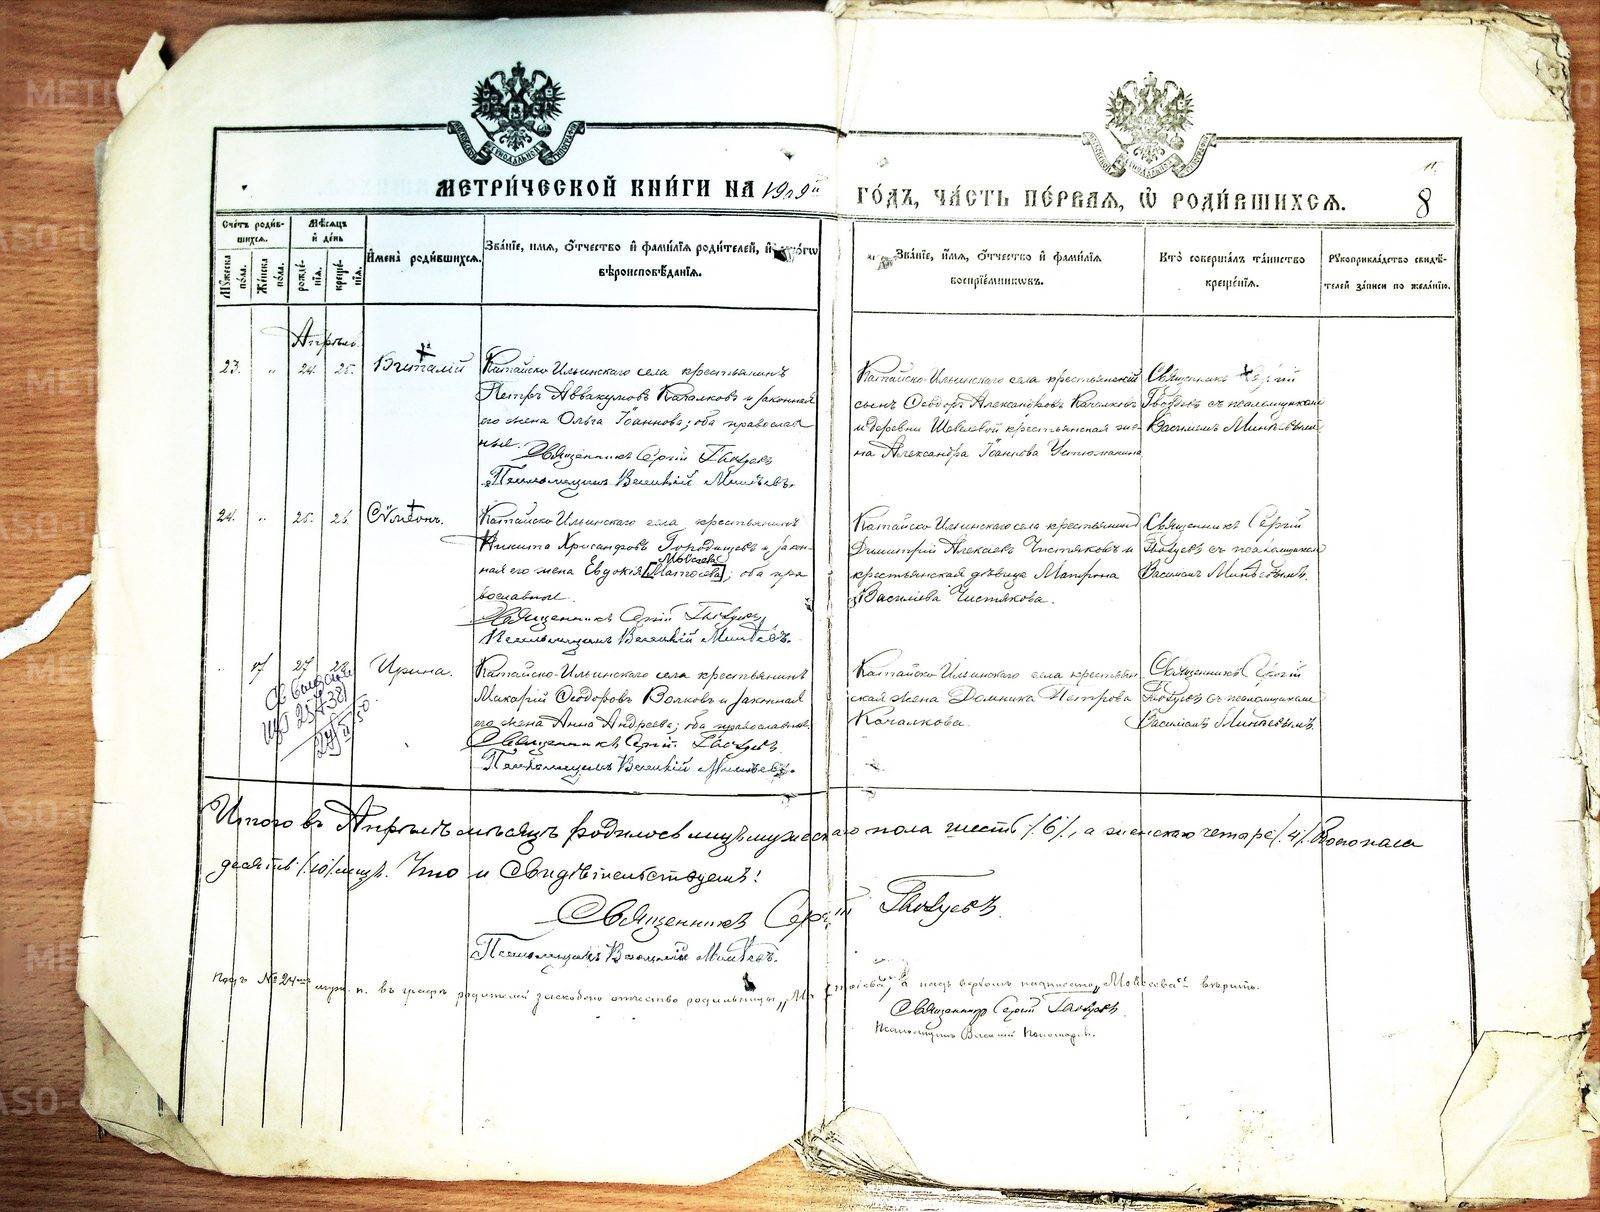 МЕТРИ́ЧЕСКОЙ КНИ́ГИ НА 1909й ГО́ДЪ, ЧА́СТЬ ПЕ́РВАЯ, Ѡ҆ РОДИ́ВШИХСЯ.
8
Сче́тъ роди́в-
шихся.
Мѣ́сяцъ
и҆ де́нь
Му́жеска по́ла.
Же́нска по́ла.
рожде́нїя.
креще́нїя.
И҆мена̀ роди́вшихся.
Зва́нїе, и҆́мя, ѻ҆́тчество и҆ фами́лїя роди́телей, и҆
вѣроисповѣ́данїя.
Зва́нїе, и҆́мя, ѻ҆́тчество и҆ фами́лїя
воспрїе́мниковъ.
Кто̀ соверша́лъ та́инство
креще́нїя.
Рукоприкла́дство свидѣ́-
телей за́писи по жела́нїю.
Апрѣль
23. " 24. 25. Виталій
Катайско-Ильинскаго села крестьянинъ
Петръ Аввакумовъ Качалковъ и законная
его жена Ольга Іоаннова; оба православ
ные.
Священникъ Сергій
Псаломщикъ Василій
Катайско-Ильинскаго села крестьянскій
сынъ Ѳеодоръ Александровъ Качалковъ
и деревни Шевелевой крестьянская же-
на Александра Іоаннова Устюжанина
Священникъ Сергій
съ псаломщикомъ
Василіемъ
24. " 25. 26. Сѵмеонъ.
Катайско-Ильинскаго села крестьянинъ
Никита Хрисанфовъ Городищевъ и закон-
Моѵсеева
ная его жена Евдокія [Матѳеева]; оба пра
вославные.
Священникъ Сергій
Псаломщикъ Василій
Катайско-Ильинскаго села крестьянинъ
Димитрій Алексѣевъ Чистяковъ и
крестьянская дѣвица Матрона
Василіева Чистякова.
Священникъ Сергій
съ псаломщикомъ
Василіемъ
" 17 27 28 Ирина.
25/38
Катайско-Ильинскаго села крестьянинъ
Макарій Ѳеодоровъ Волковъ и законная
его жена Анна Андреева; оба православные.
Священникъ Сергій
Псаломщикъ Василій
Катайско-Ильинскаго села крестьян
ская жена Домника Петрова
Качалкова.
Священникъ Сергій
съ псаломщикомъ
Василіемъ
Итого въ Апрѣлѣ мѣсяцѣ родилось лицъ мужескаго пола шесть /6/, а женскаго четыре /4/.
десять /10/ лицъ. Что и свидѣтельствуемъ!
Священникъ Сергій
Псаломщикъ Василій
Подъ №24мъ муж. п. въ графѣ родителей заскоблено отчество родильницы „Матѳеева", а надъ верхомъ надписано „Моѵсеева"
Священникъ Сергій
Псаломщикъ Василій Пономаревъ.